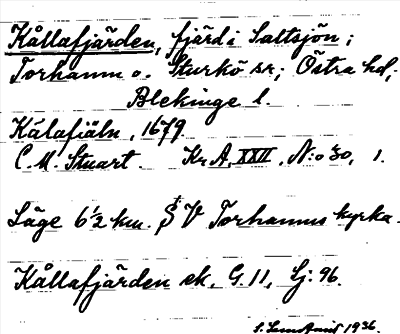 Kållafjärden, fjärd i Saltsjön;
Torhamn o. Sturkö sr; Östra hd,
Blekinge l.
Kålafiäln, 1679
C. M. Stuart. Kr A, XXII, N:o 30, 1.
Läge 6 1/2 km. SV Torhamns kyrka.
Kållafjärden ek, G. 11, Lj: 96.
1936.